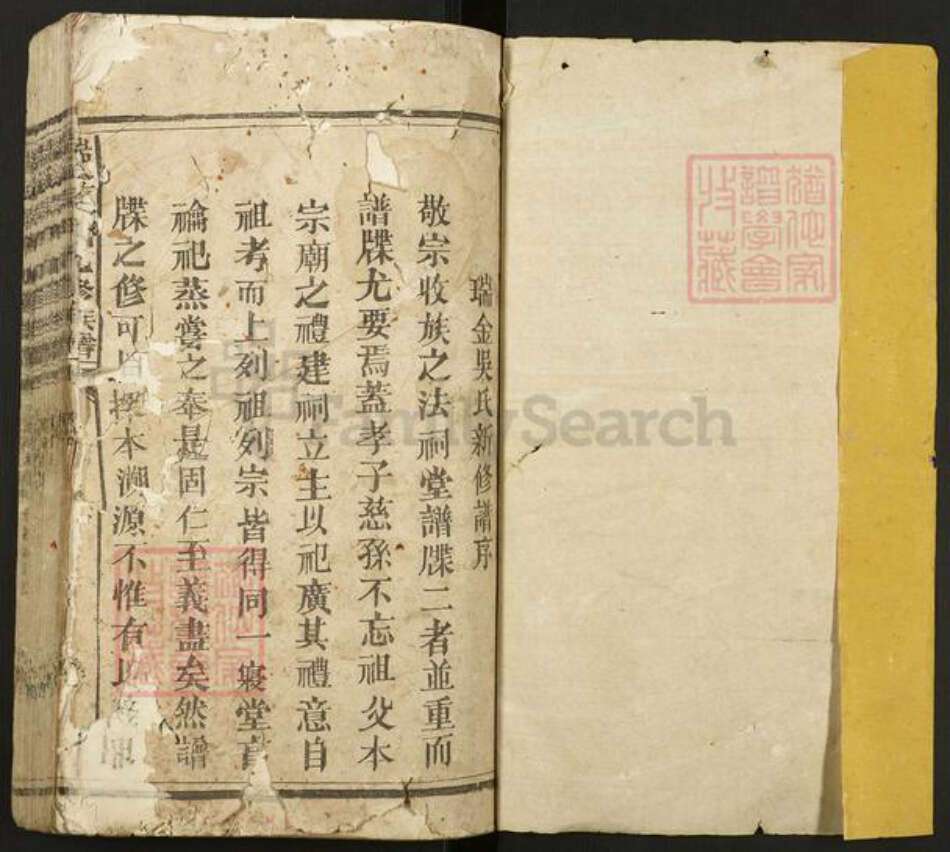 瑞金吳氏新修譜序
敬宗收族之法祠堂譜牒二者並重而
譜牒尤要焉蓋孝子慈孫不忘祖父本
宗廟之禮建祠立主以祀廣其禮意自
祖考而上列祖列宗皆得同一寢堂
禴祀蒸嘗之奉是固仁至義盡矣然譜
牒之修可本溯源不惟有
猶他家譜學會收藏
FamilySearch